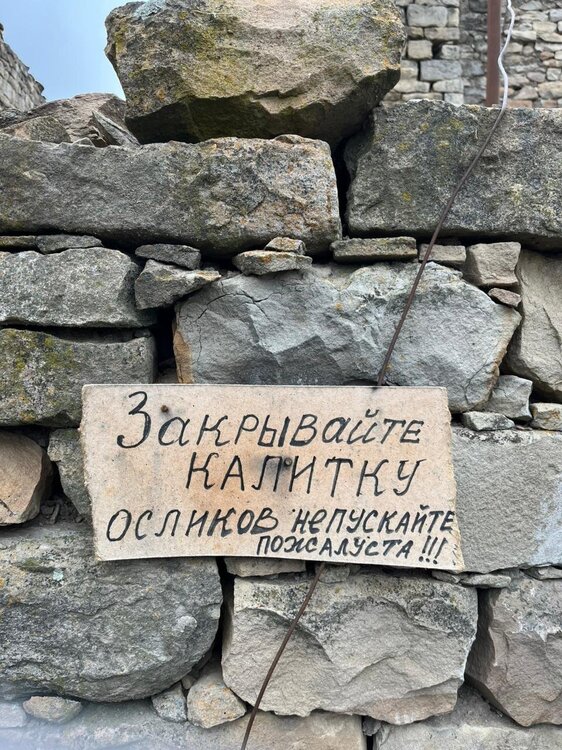 Закрывайте
КАЛИТКУ
ОСЛИКОВ НЕПУСКАЙТЕ
ПОЖАЛУСТА!!!